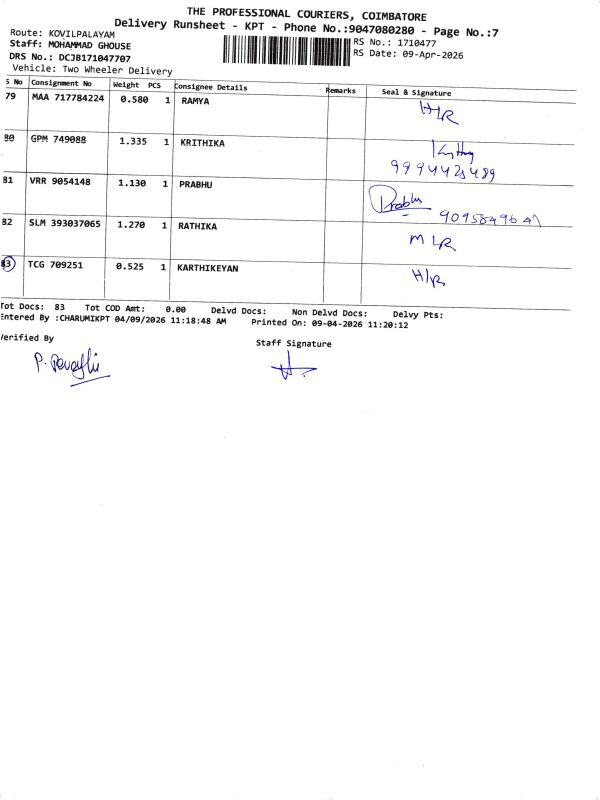 THE PROFESSIONAL COURIERS, COIMBATORE
Delivery Runsheet - KPT - Phone No.:9047080280 - Page No.:7
Route: KOVILPALAYAM
RS No.: 1710477
Staff: MOHAMMAD GHOUSE
RS Date: 09-Apr-2026
DRS No.: DCJB171047707
Vehicle: Two Wheeler Delivery
S No Consignment No Weight PCS Consignee Details Remarks Seal & Signature
79 MAA 717784224 0.580 1 RAMYA H/R
80 GPM 749088 1.335 1 KRITHIKA
9994425489
81 VRR 9054148 1.130 1 PRABHU Prabhu
82 SLM 393037065 1.270 1 RATHIKA M L R
83 TCG 709251 0.525 1 KARTHIKEYAN H/R
Tot Docs: 83 Tot COD Amt: 0.00 Delvd Docs: Non Delvd Docs: Delvy Pts:
Entered By :CHARUMIKPT 04/09/2026 11:18:48 AM Printed On: 09-04-2026 11:20:12
Verified By
Staff Signature